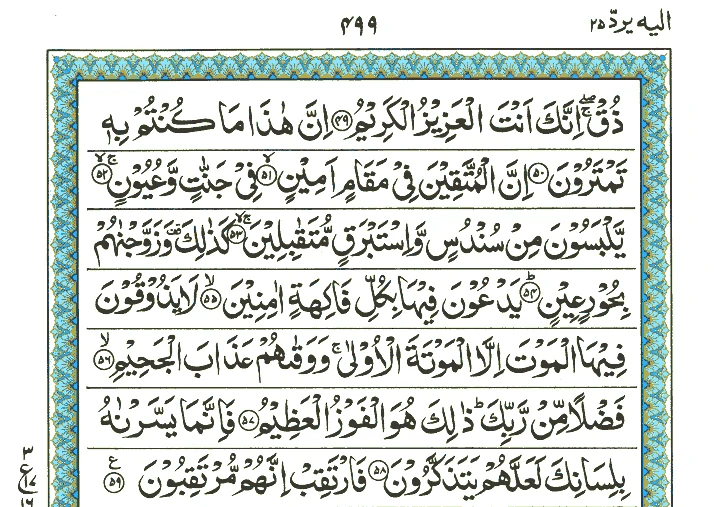 اليه يرد ٢٥
٤٩٩
ذُقْ ۚۙ اِنَّكَ اَنْتَ الْعَزِيْزُ الْكَرِيْمُ ﴿۴۹﴾ اِنَّ هٰذَا مَا كُنْتُمْ بِهٖ
تَمْتَرُوْنَ ﴿۵۰﴾ اِنَّ الْمُتَّقِيْنَ فِيْ مَقَامٍ اَمِيْنٍ ﴿۵۱﴾ۙ فِيْ جَنّٰتٍ وَّعُيُوْنٍ ﴿۵۲﴾ۚۙ
يَّلْبَسُوْنَ مِنْ سُنْدُسٍ وَّاِسْتَبْرَقٍ مُّتَقٰبِلِيْنَ ﴿۵۳﴾ۚۙ كَذٰلِكَ وَزَوَّجْنٰهُمْ
بِحُوْرٍ عِيْنٍ ﴿۵۴﴾ؕ يَدْعُوْنَ فِيْهَا بِكُلِّ فَاكِهَةٍ اٰمِنِيْنَ ﴿۵۵﴾ۙ لَا يَذُوْقُوْنَ
فِيْهَا الْمَوْتَ اِلَّا الْمَوْتَةَ الْاُوْلٰى ۚ وَوَقٰىهُمْ عَذَابَ الْجَحِيْمِ ﴿۵۶﴾ۙ
فَضْلًا مِّنْ رَّبِّكَ ؕ ذٰلِكَ هُوَ الْفَوْزُ الْعَظِيْمُ ﴿۵۷﴾ فَاِنَّمَا يَسَّرْنٰهُ
بِلِسَانِكَ لَعَلَّهُمْ يَتَذَكَّرُوْنَ ﴿۵۸﴾ فَارْتَقِبْ اِنَّهُمْ مُّرْتَقِبُوْنَ ﴿۵۹﴾ ع
٣
ع
١٧
١٦